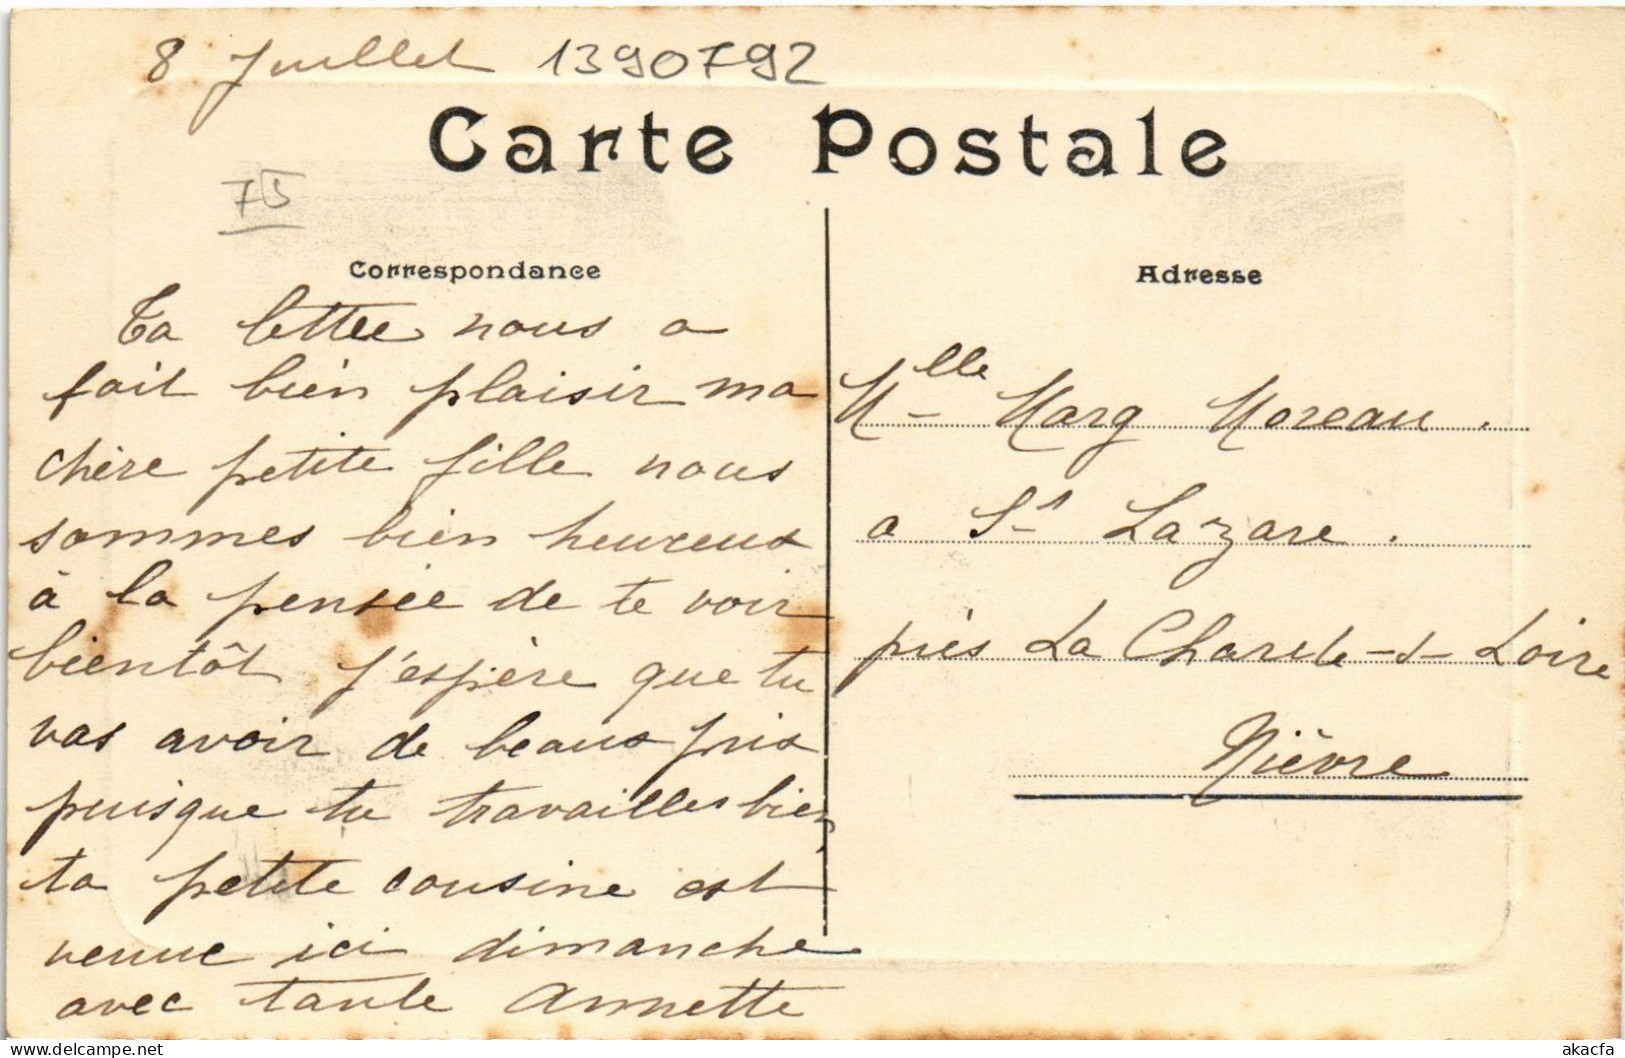 8 Juillet 1390792
Carte Postale
75
Correspondance
Ta lettre nous a
fait bien plaisir ma
chère petite fille nous
sommes bien heureux
à la pensée de te voir
bientôt j'espère que tu
vas avoir de beaux prix
puisque tu travailles bien,
ta petite cousine est
venue ici dimanche
avec tante Annette
Adresse
Mlle Marg Moreau.
a St Lazare.
près La Charité-s-Loire
Nièvre
akacfa